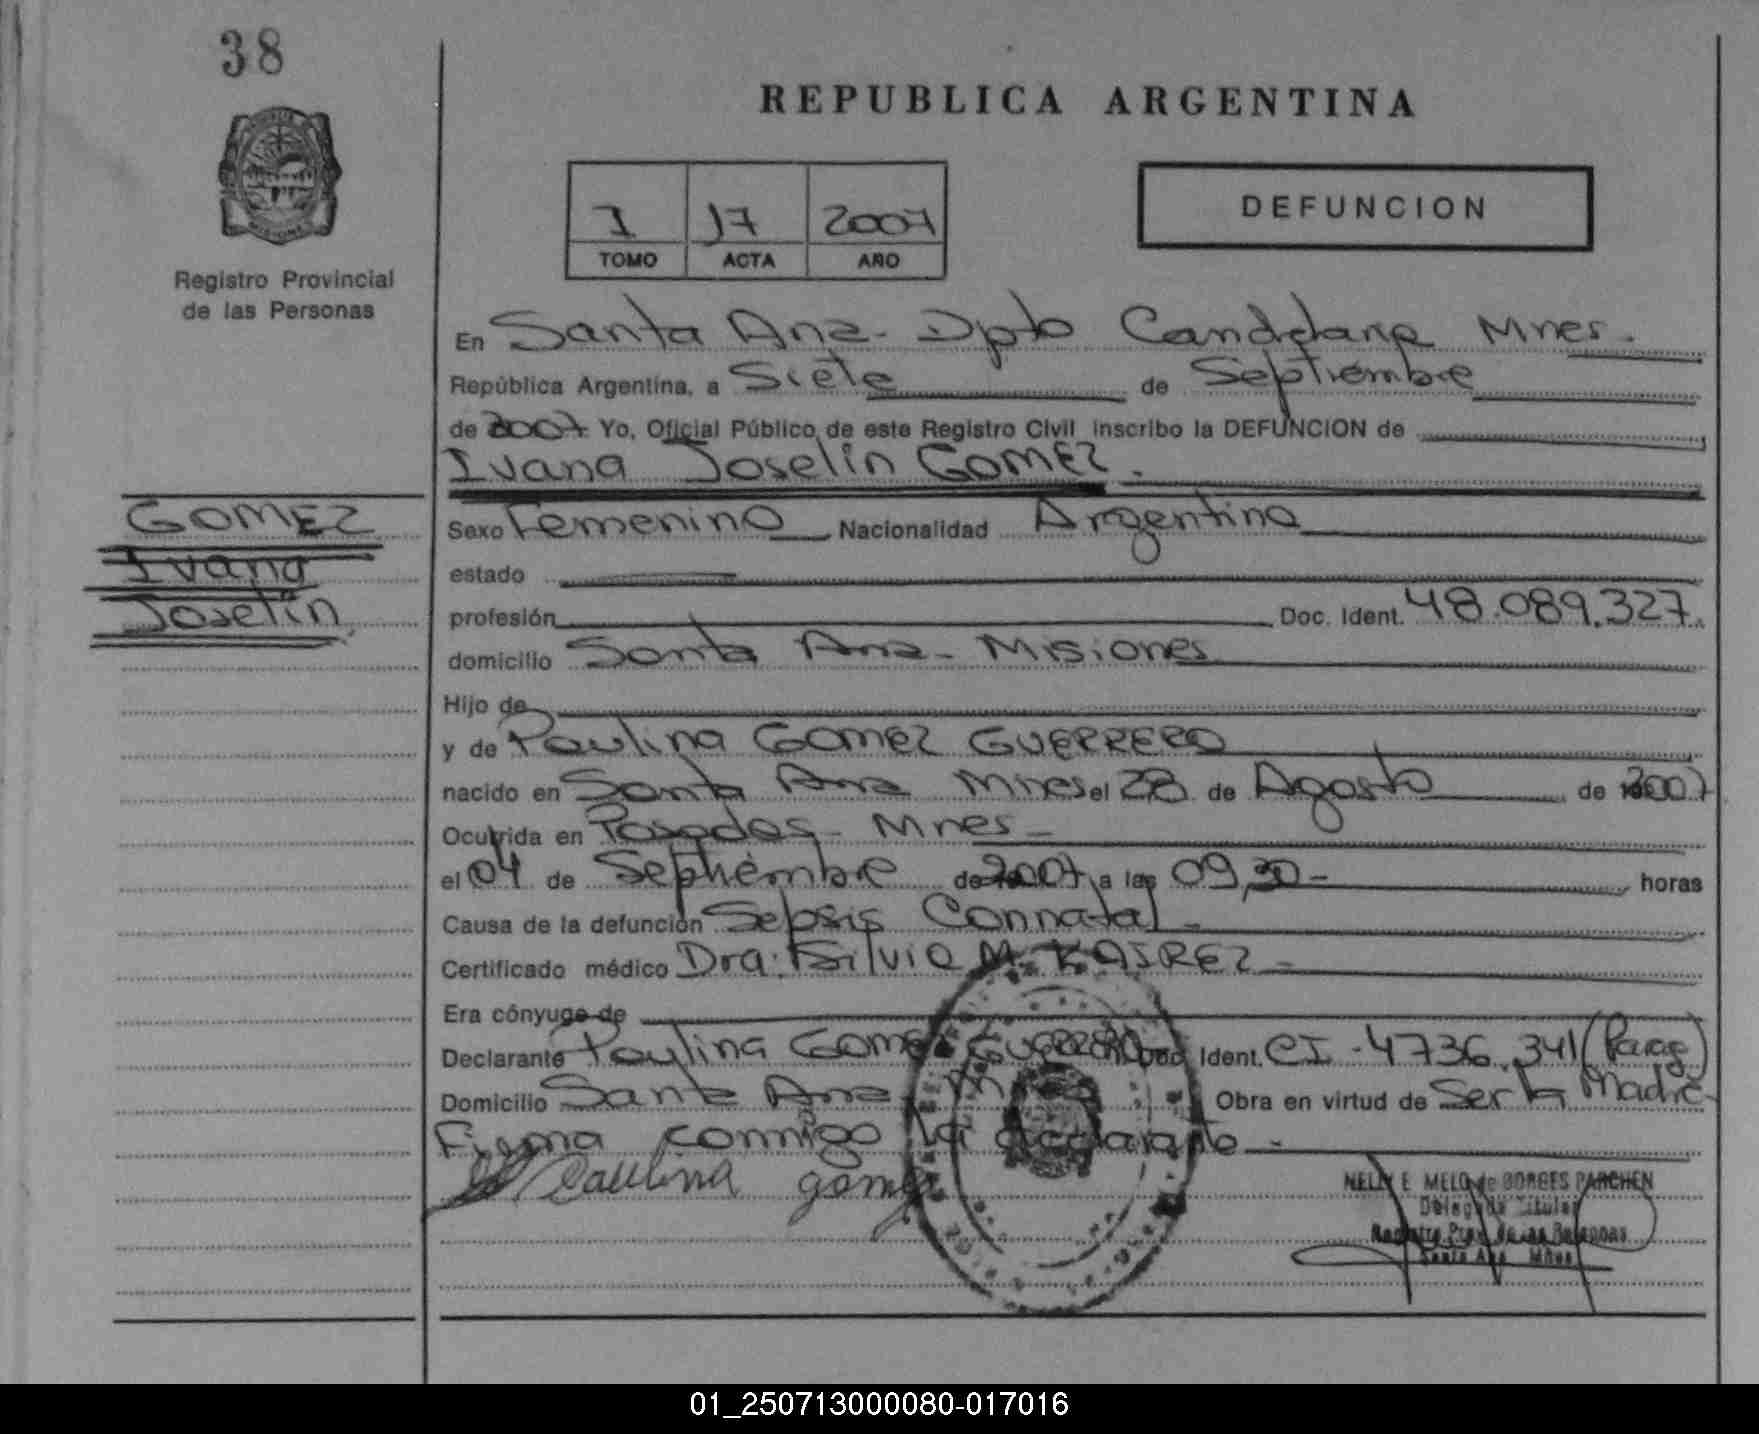 38
REPUBLICA ARGENTINA
DEFUNCION
I 17 2007
TOMO ACTA AÑO
Registro Provincial
de las Personas
En Santa Ana- Dpto Candelaria Mnes.
República Argentina, a Siete de Septiembre
de 2007 Yo, Oficial Público de este Registro Civil inscribo la DEFUNCION de
Ivana Joselin GOMEZ.
GOMEZ
Ivana
Joselin
Sexo Femenino Nacionalidad Argentina
estado
profesión Doc. Ident. 48.089.327.
domicilio Santa Ana- Misiones
Hijo de
y de Paulina GOMEZ GUERRERO
nacido en Santa Ana Mnes el 28 de Agosto de 2007
Ocurrida en Posadas- Mnes-
el 04 de Septiembre de 2007 a las 09,30- horas
Causa de la defunción Sepsis Connatal-
Certificado médico Dra. Silvia M.
Era cónyuge de
Declarante Paulina Gomez Guerrero Doc. Ident. CI-4736.341 (Parag)
Domicilio Santa Ana Mnes Obra en virtud de Ser la Madre-
Firma conmigo la declarante-
Paulina gomez
NELLY E MELO de BORGES PARCHEN
Delegada Titular
Registro Prov. de las Personas
Santa Ana Mnes
01_250713000080-017016